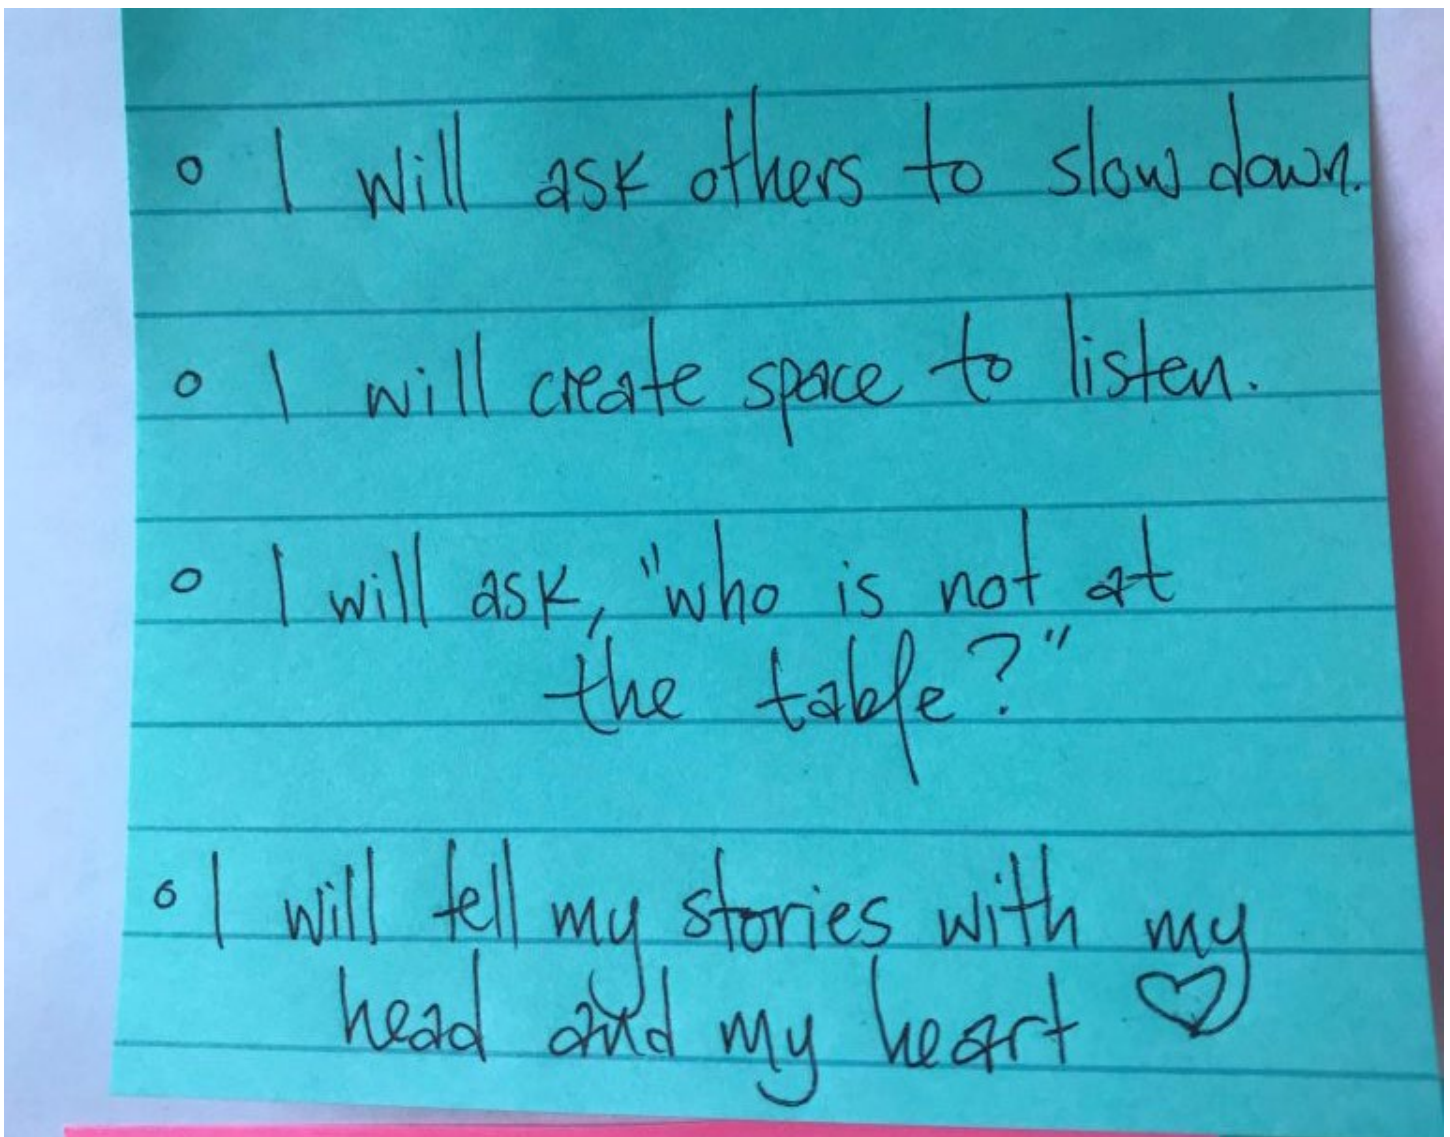 o I will ask others to slow down.
o I will create space to listen.
o I will ask, "who is not at
the table?"
o I will tell my stories with my
head and my heart ♡